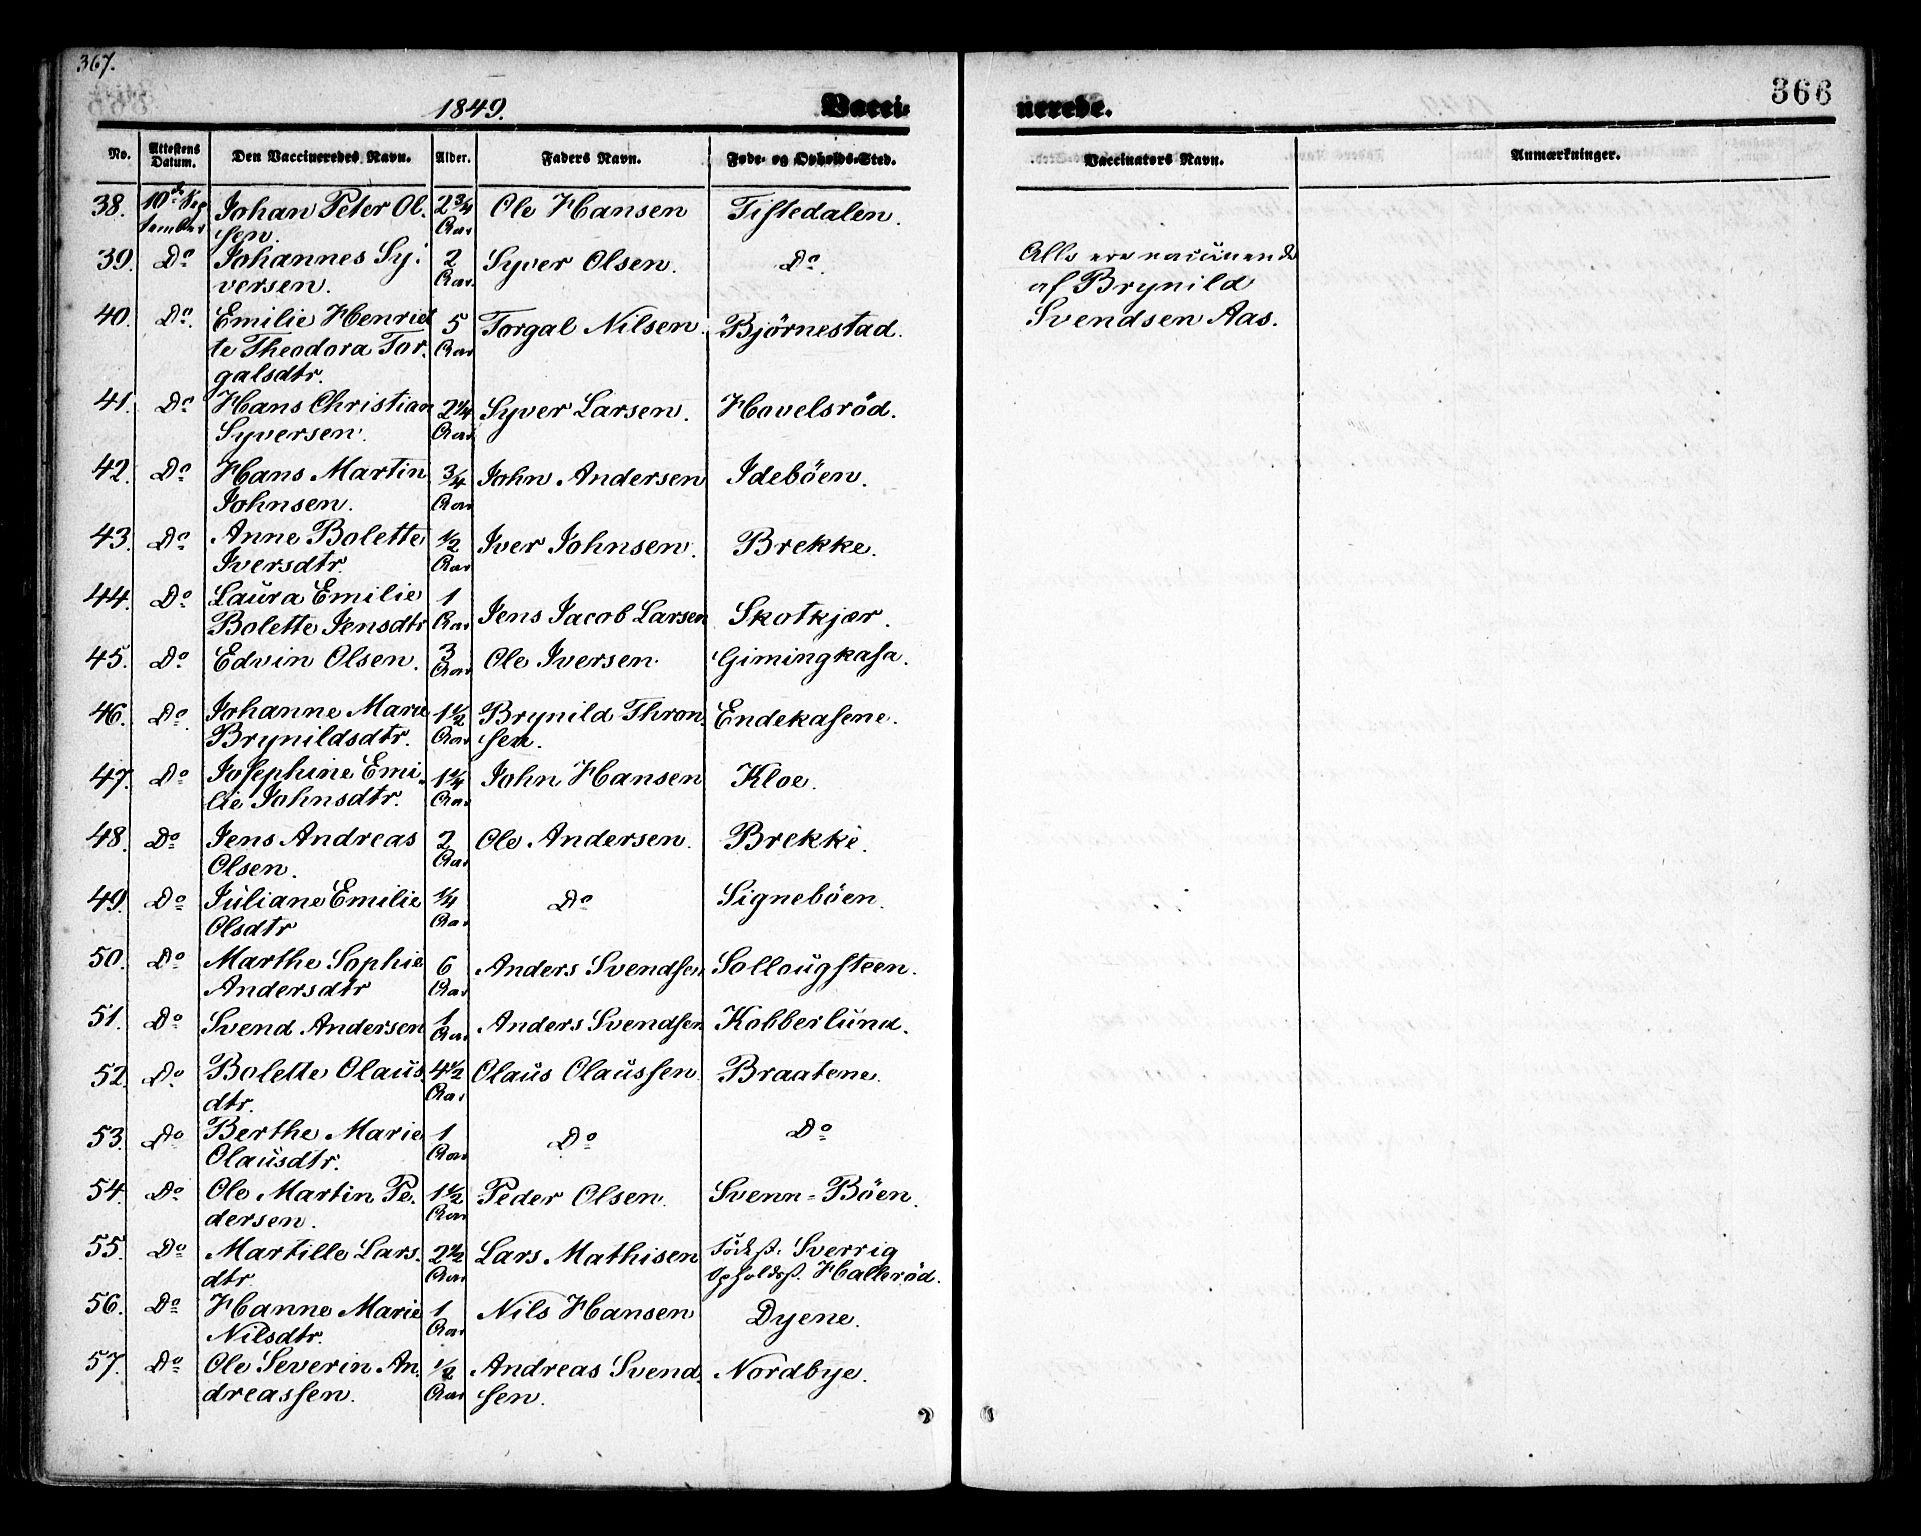 367.
366
1849.
Vacci-
nerede.
No. Attestens Datum. Den Vaccineredes Navn. Alder. Faders Navn. Føde- og Opholds-Sted. Vaccinators Navn. Anmærkninger.
38. 10de Sep- Johan Peter Ol- 2 3/4 Ole Hansen Tistedalen.
tember sen. Aar
39. Do Johannes Sy- 2 Syver Olsen. Do. Alle ere vaccinerede
versen. Aar. af Brynild
40. Do. Emilie Henriet 5 Torgal Nilsen. Björnestad. Svendsen Aas.
te Theodora Tor- Aar
galsdtr.
41. Do Hans Christian 2 1/4 Syver Larsen. Hovelsröd.
Syversen. Aar
42. Do Hans Martin 3/4 John Andersen Ideböen.
Johnsen. Aar
43. Do Anne Bolette 1/2 Iver Johnsen. Brekke.
Iversdtr. Aar
44. Do Laura Emilie 1 Jens Jacob Larsen Skotkjær.
Bolette Jensdtr Aar
45. Do Edvin Olsen. 3 Ole Iversen. Gimingkasa.
Aar
46. Do. Johanne Marie 1 1/2 Brynild Thron- Endekasene.
Brynildsdtr. Aar sen.
47. Do Josephine Emi- 1 1/4 John Hansen Kloe.
lie Johnsdtr. Aar
48. Do Jens Andreas 2 Ole Andersen. Brekke.
Olsen. Aar
49. Do Juliane Emilie 1/4 Do Signeböen.
Olsdtr Aar
50. Do Marthe Sophie 6 Anders Svendsen Sollougsteen.
Andersdtr Aar
51. Do Svend Andersen 1 Anders Svendsen Kobberlund.
Aar
52. Do Bolette Olaus- 4 1/2 Olaus Olaussen. Braatene.
dtr. Aar
53. Do Berthe Marie 1 Do Do
Olausdtr. Aar
54. Do Ole Martin Pe- 1 1/2 Peder Olsen. Svenn-Böen.
dersen. Aar
55. Do Martille Lars- 2 1/2 Lars Mathisen Födest: Sverrig
dtr. Aar Opholdsst. Halleröd.
56. Do Hanne Marie 1 Nils Hansen Dyene.
Nilsdtr. Aar
57. Do Ole Severin An- 1/2 Andreas Svend- Nordbye.
dreassen. Aar sen.